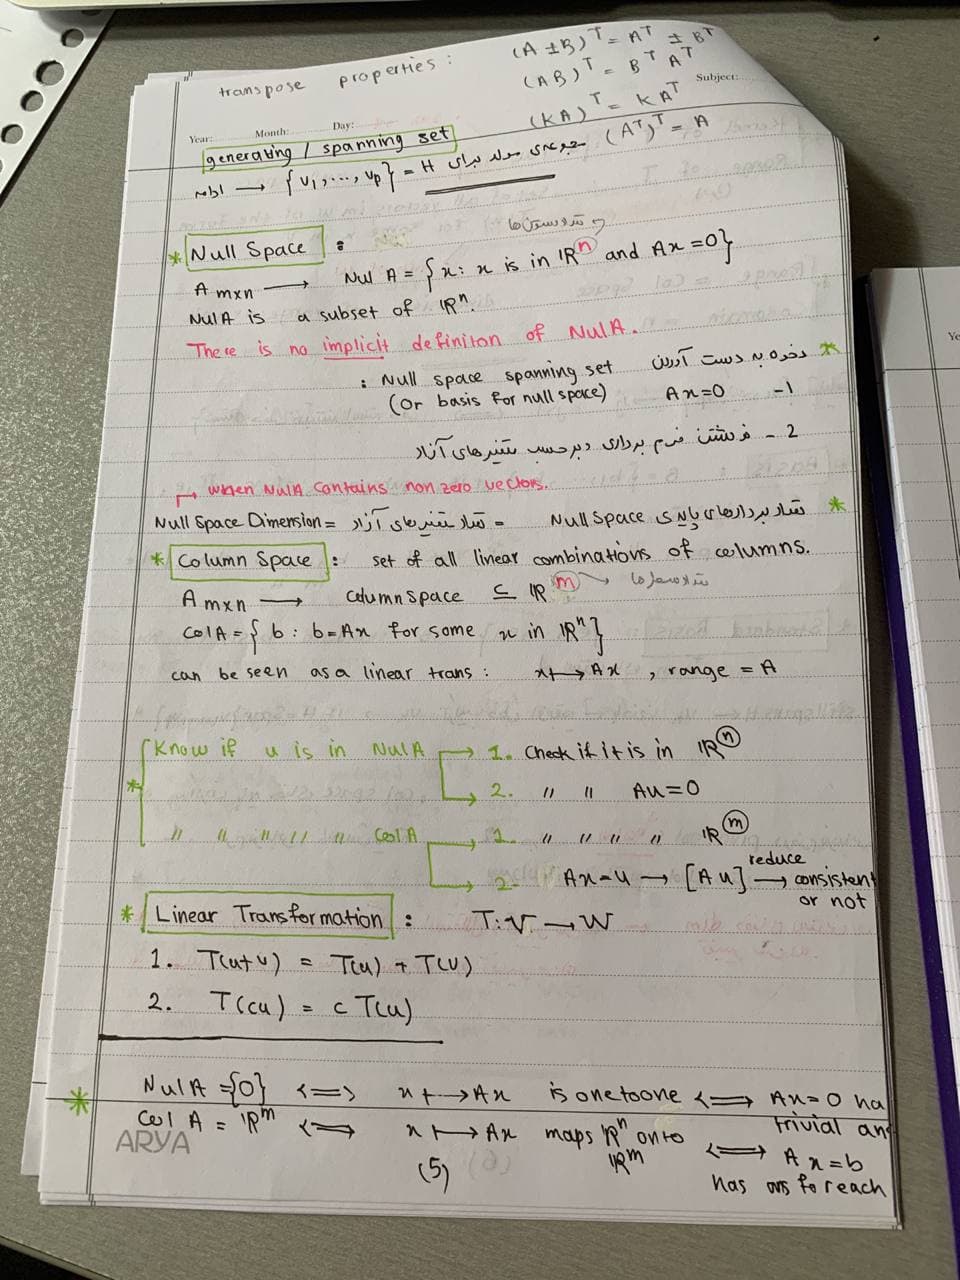 transpose properties :
(A ± B)ᵀ = Aᵀ ± Bᵀ
(AB)ᵀ = Bᵀ Aᵀ
(KA)ᵀ = KAᵀ
(Aᵀ)ᵀ = A
Subject:
Year: Month: Day:
generating / spanning set
ادامه → {v₁, ..., vp} = مجموعه‌ی مولد برای H
* Null Space :
تعداد ستون‌ها
A m×n → Nul A = {x : x is in ℝⁿ and Ax=0}
Nul A is a subset of ℝⁿ.
There is no implicit definiton of Nul A.
* نحوه به دست آوردن Null space spanning set :
(Or basis for null space)
1- Ax=0
2- نوشتن فرم برداری و برحسب متغیرهای آزاد
when Nul A contains non zero vectors.
* تعداد بردارهای پایه‌ی Null Space = تعداد متغیرهای آزاد = Null Space Dimension
* Column Space : set of all linear combinations of columns.
A m×n → column space ⊆ ℝᵐ → تعداد سطرها
Col A = { b : b=Ax for some x in ℝⁿ}
can be seen as a linear trans : x ↦ Ax , range = A
* Know if u is in Nul A → 1. Check if it is in ℝⁿ
→ 2. " " Au=0
" " " " " Col A → 1. " " " " ℝᵐ
→ 2. " Ax=u → [A u] reduce → consistent
or not
* Linear Transformation : T: V → W
1. T(u+v) = T(u) + T(v)
2. T(cu) = c T(u)
* Nul A = {0} ⟺ x ↦ Ax is one to one ⟺ Ax=0 ha
trivial an
Col A = ℝᵐ ⟺ x ↦ Ax maps ℝⁿ onto
ℝᵐ ⟺ Ax=b
has ans for each
ARYA
(5)